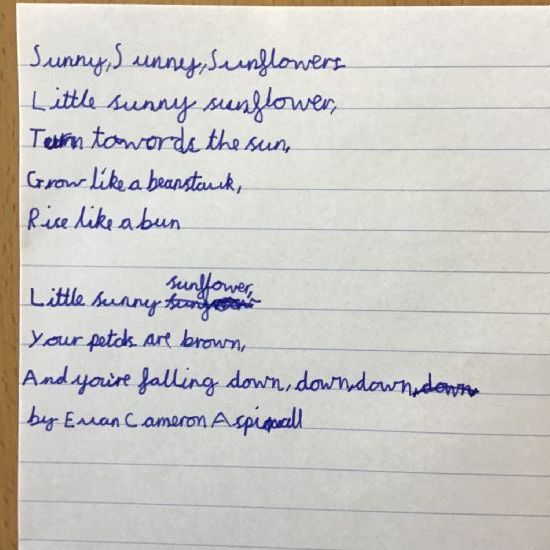 Sunny, Sunny, Sunflowers
Little sunny sunflower,
Turn towords the sun,
Grow like a beanstauk,
Rise like a bun
sunflower,
Little sunny
your petals are brown,
And you're falling down, down, down,
by Euan Cameron Aspinall